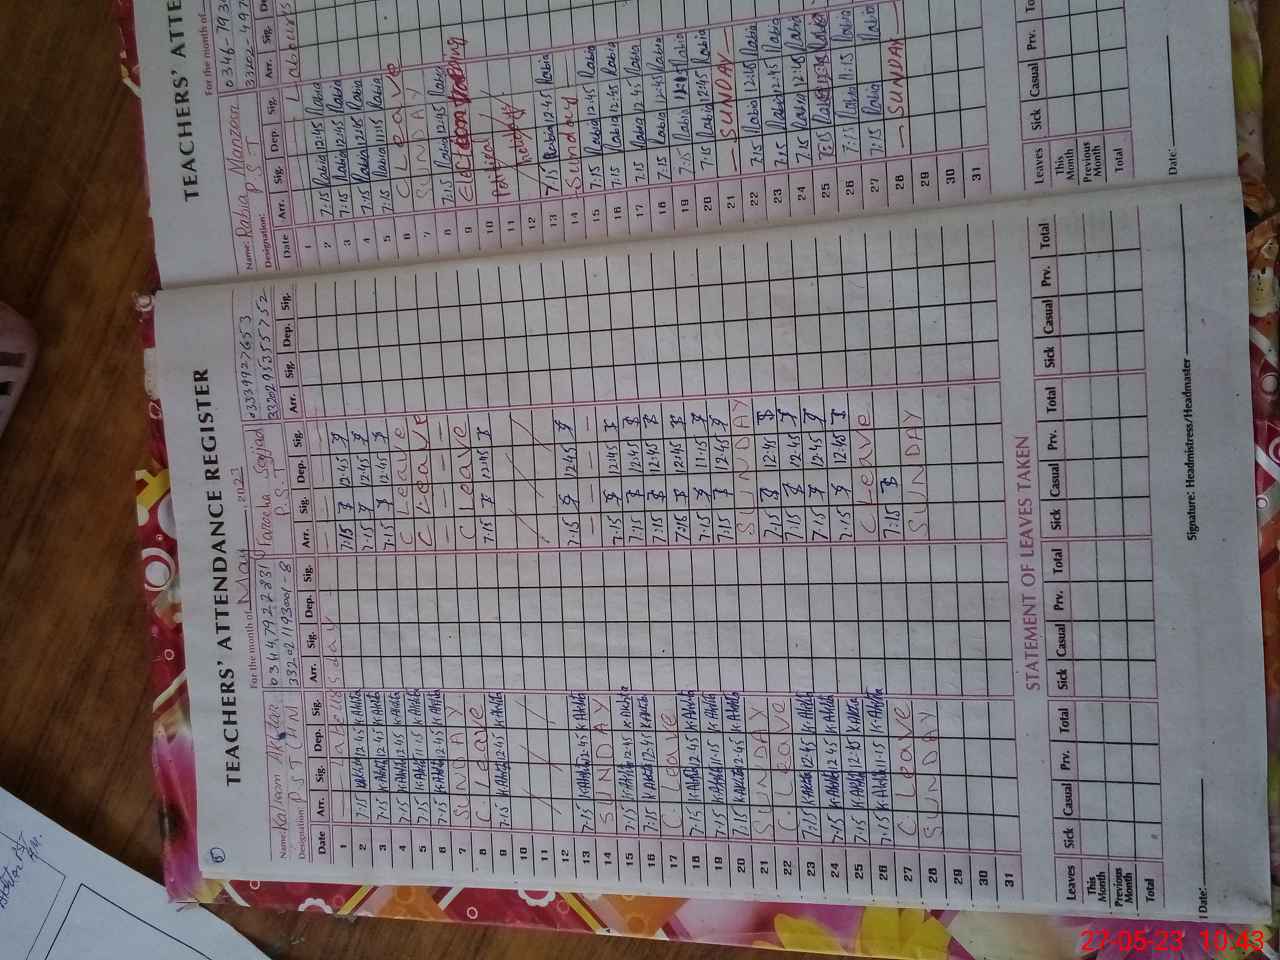 5
TEACHERS' ATTENDANCE REGISTER
For the month of May, 2023
Name: Kalsoom Akhtar 03447927831 Sajjad 03339927653
Designation P.S.T 33202 1193001-8 P.S.T
Date Arr. Sig. Dep. Sig. Arr. Sig. Dep. Sig. Arr. Sig. Dep. Sig. Arr. Sig. Dep. Sig.
1 Labour's day
2 7:15 K.Akhtar 12:45 K.Akhtar 7:15 12:45
3 7:15 K.Akhtar 12:45 K.Akhtar 7:15 12:45
4 7:15 K.Akhtar 12:45 K.Akhtar 7:15 12:45
5 7:15 K.Akhtar 11:15 K.Akhtar C Leave
6 7:15 K.Akhtar 12:45 K.Akhtar C Leave
7 SUNDAY
8 C. Leave C Leave
9 7:15 K.Akhtar 12:45 K.Akhtar 7:15 12:45
10
11
12
13 7:15 K.Akhtar 12:45 K.Akhtar 7:15 12:45
14 SUNDAY
15 7:15 K.Akhtar 12:45 K.Akhtar 7:15 12:45
16 7:15 K.Akhtar 12:45 K.Akhtar 7:15 12:45
17 C. Leave 7:15 12:45
18 7:15 K.Akhtar 12:45 K.Akhtar 7:15 12:45
19 7:15 K.Akhtar 11:15 K.Akhtar 7:15 11:15
20 7:15 K.Akhtar 12:45 K.Akhtar 7:15 12:45
21 SUNDAY SUNDAY
22 C. Leave 7:15 12:45
23 7:15 K.Akhtar 12:45 K.Akhtar 7:15 12:45
24 7:15 K.Akhtar 12:45 K.Akhtar 7:15 12:45
25 7:15 K.Akhtar 12:45 K.Akhtar 7:15 12:45
26 7:15 K.Akhtar 11:15 K.Akhtar C Leave
27 C. Leave 7:15
28 SUNDAY SUNDAY
29
30
31
STATEMENT OF LEAVES TAKEN
Leaves Sick Casual Prv. Total Sick Casual Prv. Total Sick Casual Prv. Total Sick Casual Prv. Total
This Month
Previous Month
Total
Date: Signature: Headmistress/Headmaster
TEACHERS' ATTE
For the month of
Name: Rabia Manzoor 0346-793
Designation: P.S.T
Date Arr. Sig. Dep. Sig. Arr. Sig. De
1 Labours
2 7:15 Rabia 12:45 Rabia
3 7:15 Rabia 12:45 Rabia
4 7:15 Rabia 12:45 Rabia
5 7:15 Rabia 11:15 Rabia
6 C Leave
7 SUNDAY
8 7:15 Rabia 12:45 Rabia
9 Election training
10 Political
11 holiday
12
13 7:15 Rabia 12:45 Rabia
14 Sunday
15 7:15 Rabia 12:45 Rabia
16 7:15 Rabia 12:45 Rabia
17 7:15 Rabia 12:45 Rabia
18 7:15 Rabia 12:45 Rabia
19 7:15 Rabia Rabia
20 7:15 Rabia 12:45 Rabia
21 SUNDAY
22 7:15 Rabia 12:45 Rabia
23 7:15 Rabia 12:45 Rabia
24 7:15 Rabia 12:45 Rabia
25 7:15 Rabia Rabia
26 7:15 Rabia 11:15 Rabia
27 7:15 Rabia
28 SUNDAY
29
30
31
Leaves Sick Casual Prv. To
This Month
Previous Month
Total
Date:
27-05-23 10:43